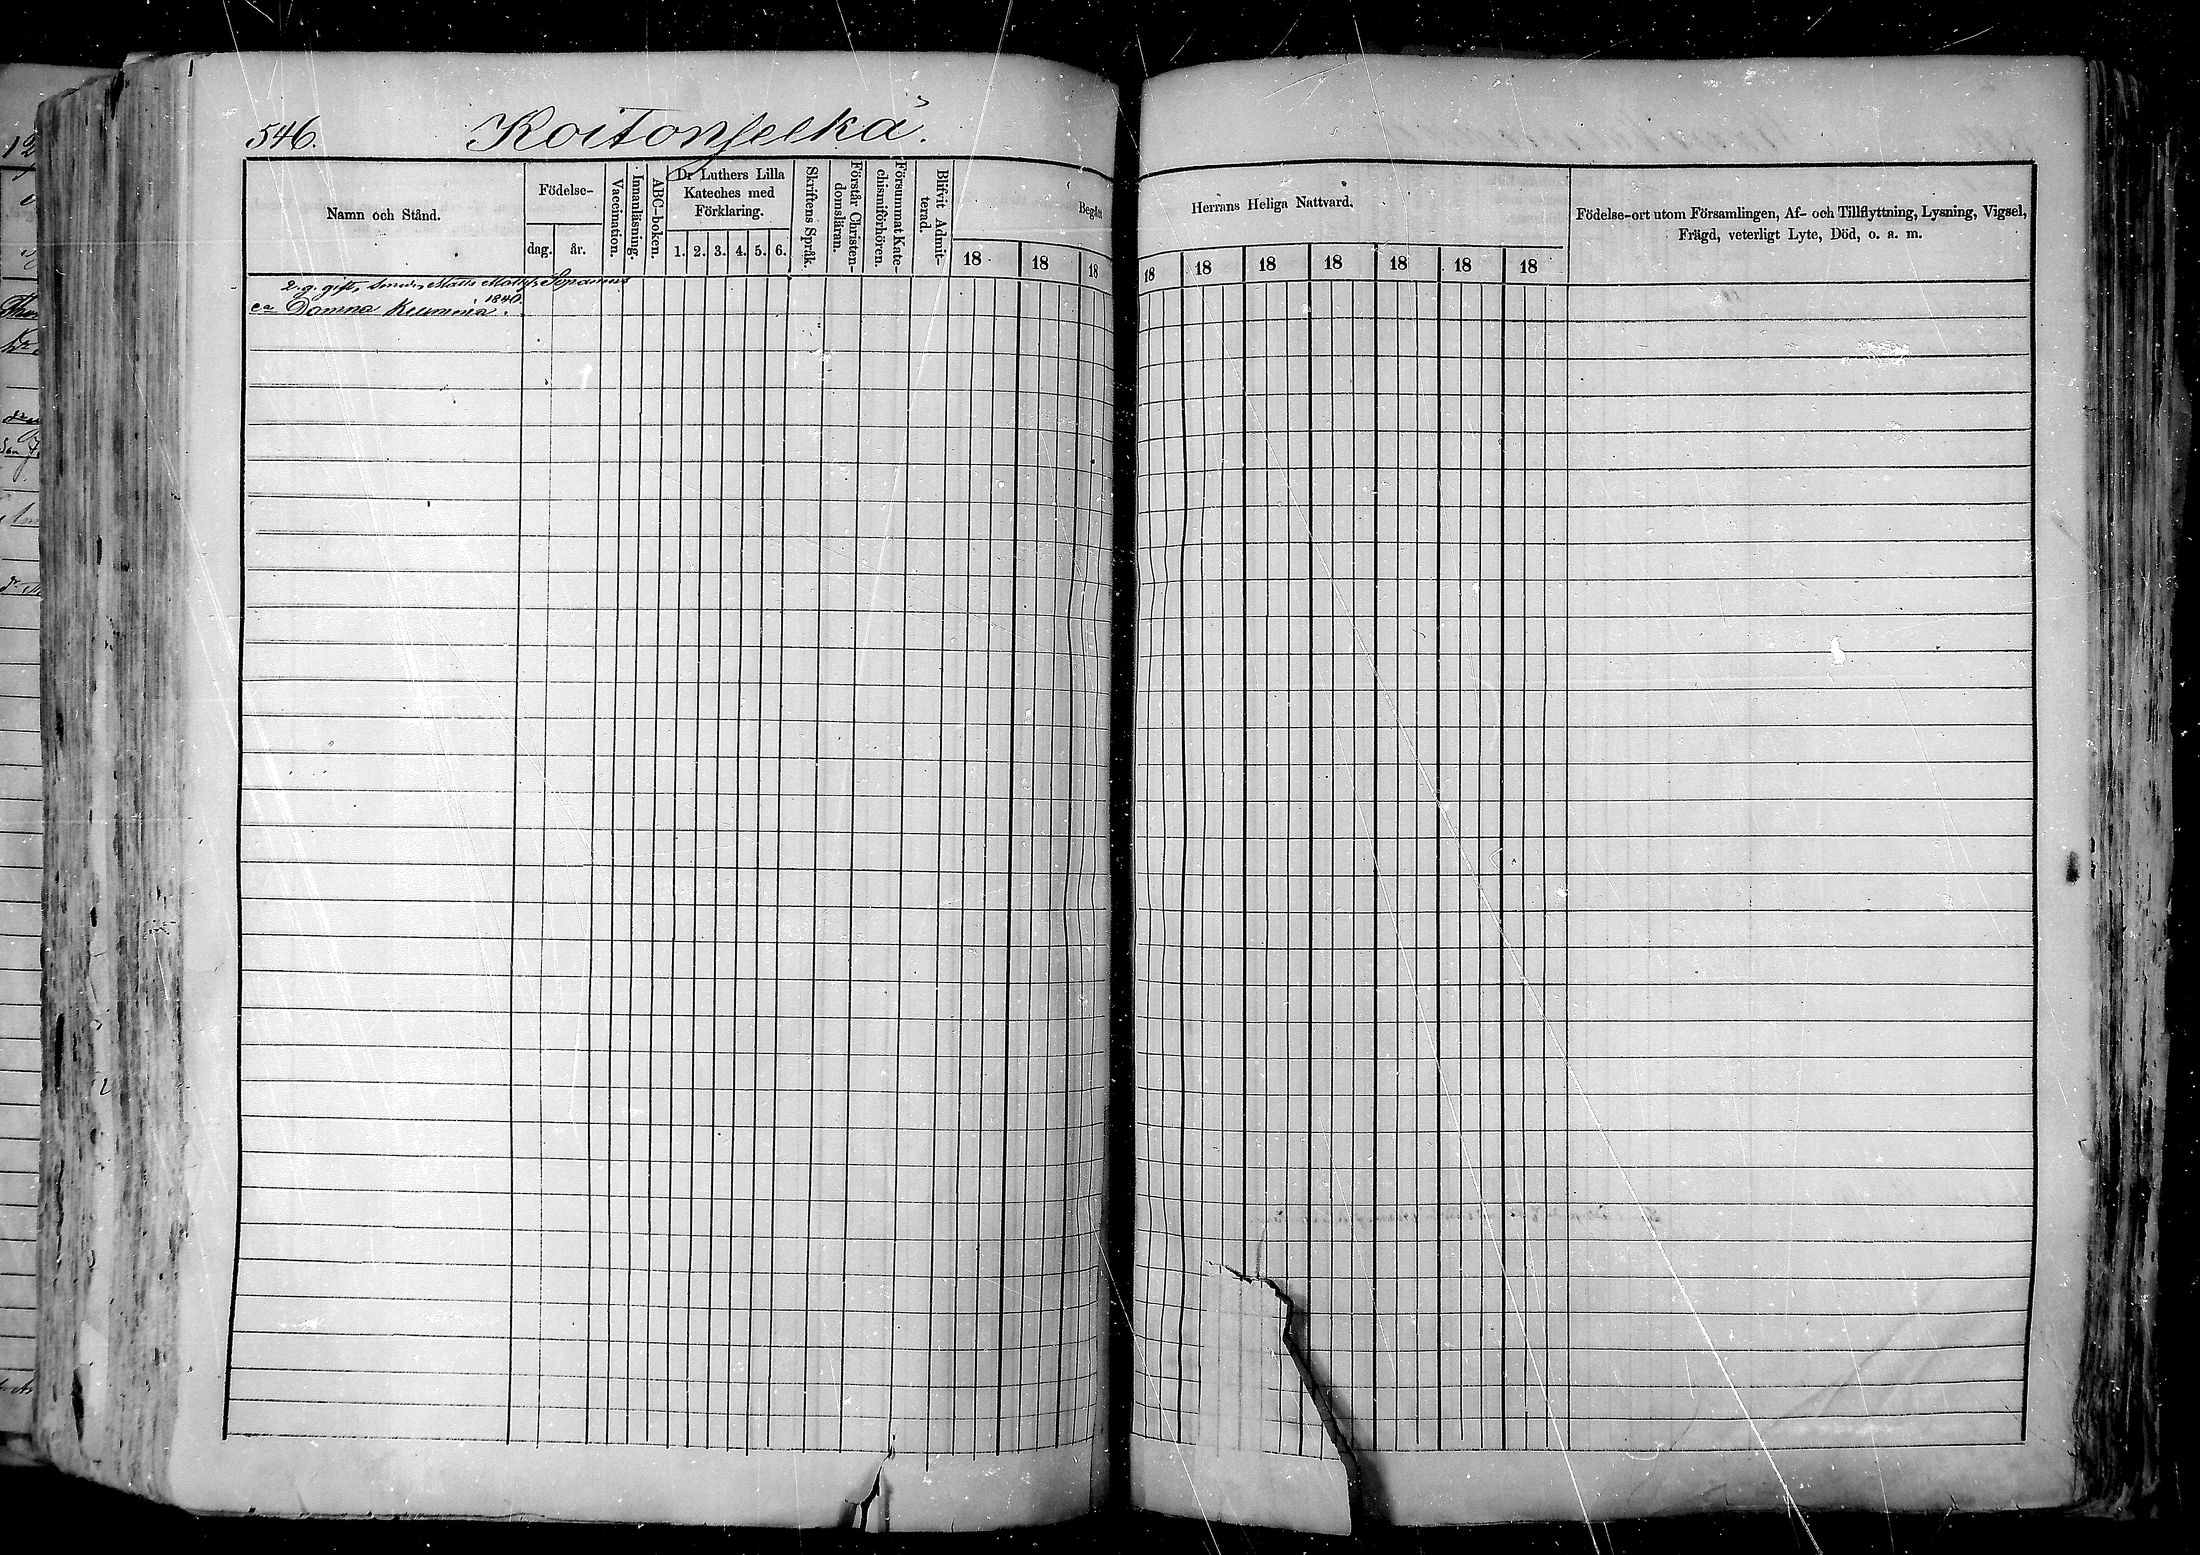 546.
Koitonselkä.
Namn och Stånd.
Födelse-
dag.
år.
Vaccination.
Innanläsning.
ABC-boken.
Dr Luthers Lilla
Kateches med
Förklaring.
1. 2. 3. 4. 5. 6.
Skriftens Språk.
Förstår Christen-
domsläran.
Försummat Kate-
chismiförhören.
Blifvit Admit-
terad.
Begått
18 18 18
Herrans Heliga Nattvard.
18 18 18 18 18 18 18
Födelse-ort utom Församlingen, Af- och Tillflyttning, Lysning, Vigsel,
Frägd, veterligt Lyte, Död, o. a. m.
2. g. gift, Matts Matts Sopanens
1840.
ea Domna